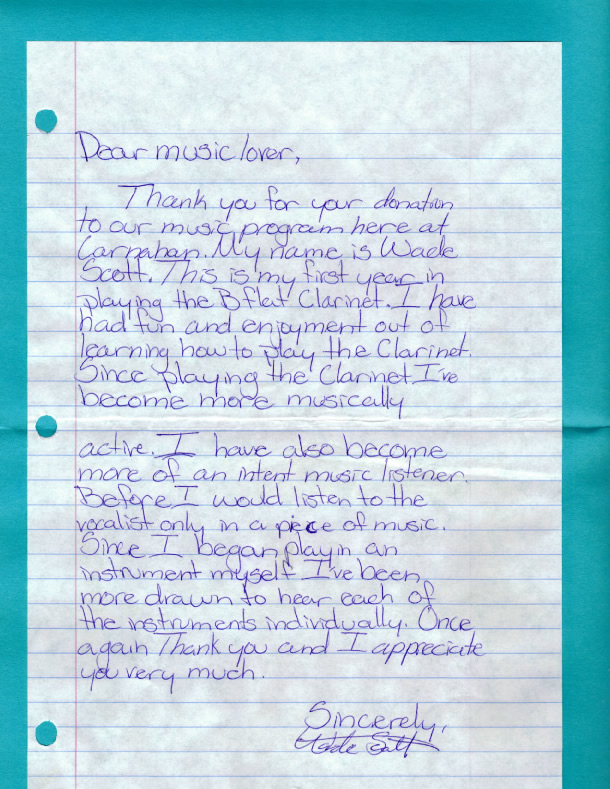 Dear music lover,
Thank you for your donation
to our music program here at
Carnahan. My name is Wade
Scott. This is my first year in
playing the B flat Clarinet. I have
had fun and enjoyment out of
learning how to play the Clarinet.
Since playing the Clarinet I've
become more musically
active. I have also become
more of an intent music listener.
Before I would listen to the
vocalist only in a piece of music.
Since I began playin an
instrument myself I've been
more drawn to hear each of
the instruments individually. Once
again Thank you and I appreciate
you very much.
Sincerely,
Wade Scott